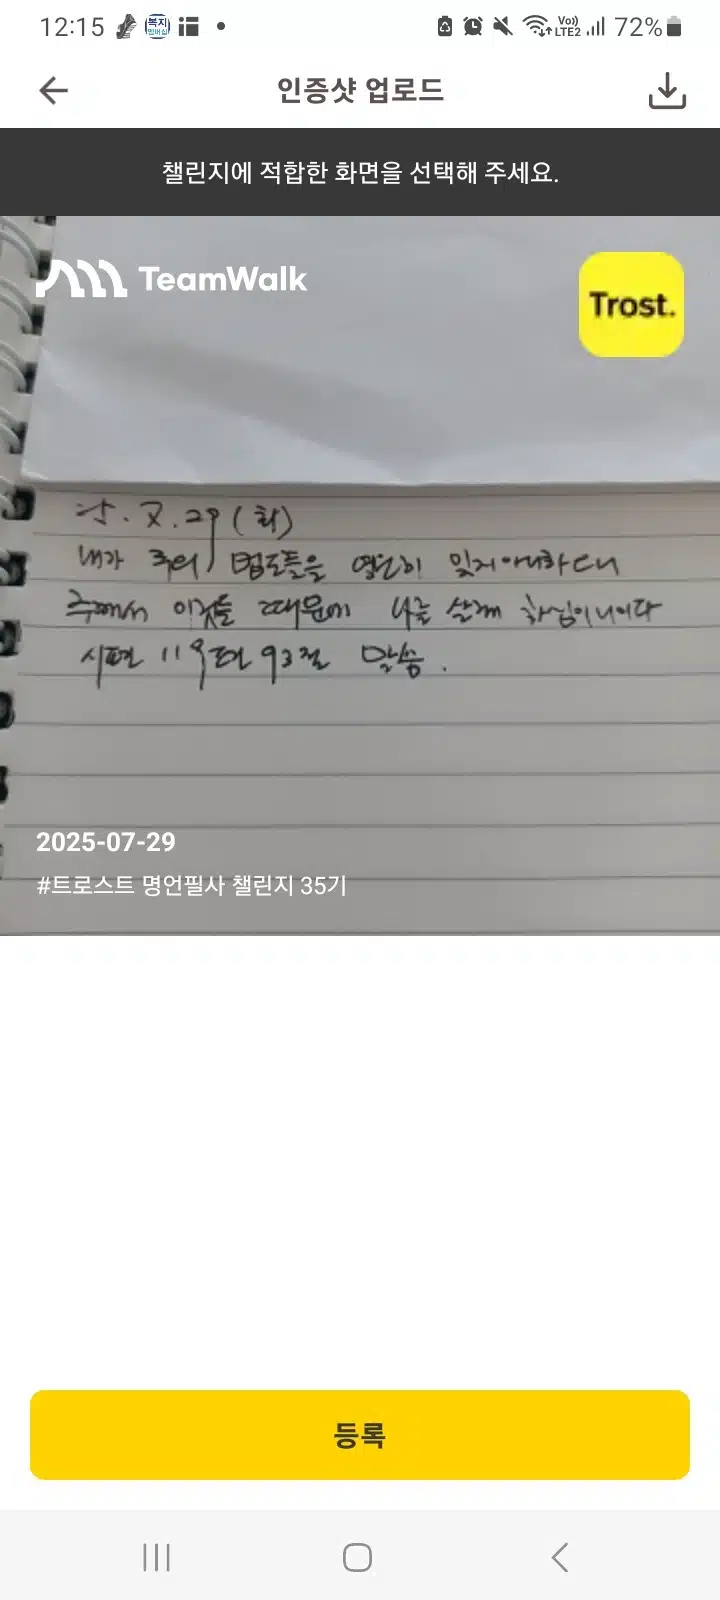 12:15 복지 멤버십 Vo)) LTE2 72%
인증샷 업로드
챌린지에 적합한 화면을 선택해 주세요.
TeamWalk
Trost.
25.7.29 (화)
내가 주의 법도들을 영원히 잊지아니하오니
주께서 이것들 때문에 나를 살게 하심이니이다
시편 119편 93절 말씀.
2025-07-29
#트로스트 명언필사 챌린지 35기
등록